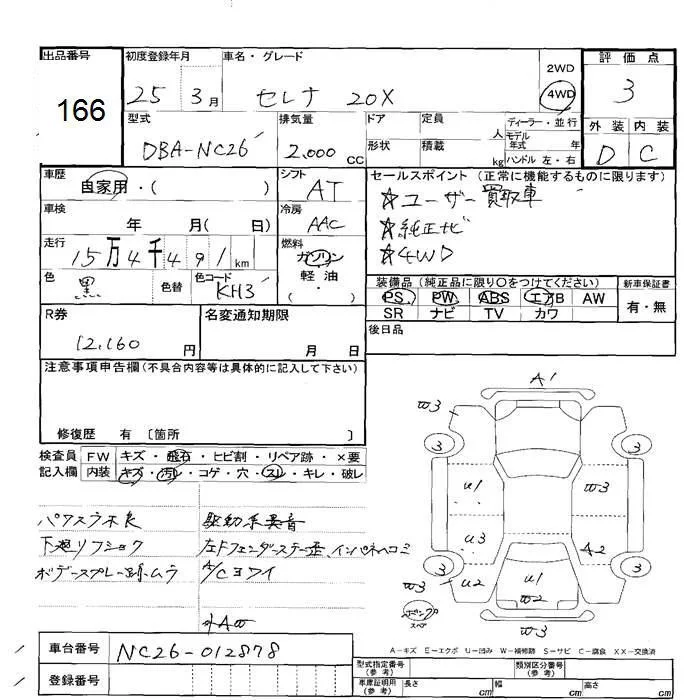 出品番号
166
初度登録年月
25 3月
車名・グレード
セレナ 20X
2WD
4WD
評価点
3
型式
DBA-NC26
排気量
2.000 CC
ドア
形状
定員 人
積載 kg
ディーラー・並行
モデル年式 年
ハンドル 左・右
外装 内装
D C
車歴
自家用・( )
シフト
AT
車検
年 月( 日)
冷房
AAC
走行
15万4千491km
燃料
ガソリン
軽油
・( )
色
黒
色替
色コード
KH3
セールスポイント(正常に機能するものに限ります)
☆ユーザー買取車
☆純正ナビ
☆4WD
装備品(純正品に限り○をつけてください)
PS PW ABS エアB AW
SR ナビ TV カワ
新車保証書
有・無
後日品
R券
12,160円
名変通知期限
月 日
注意事項申告欄(不具合内容等は具体的に記入して下さい)
修復歴 有 〔箇所 〕
検査員
記入欄
FW キズ・飛石・ヒビ割・リペア跡・×要
内装 キズ・汚れ・コゲ・穴・スレ・キレ・破レ
パワスラ不良
下廻りフショク
ボデースプレー跡ムラ
駆動系異音
左Fフェンダーステー歪、インパネヘコミ
A/Cヨワイ
A1
W3
3
3
U1
W3
U3
A2
3
U2
U1
W2
3
W3
W3
スペア
A-キズ E-エクボ U-凹み W-補修跡 S-サビ C-腐食 XX-交換済
車台番号
NC26-012878
登録番号
型式指定番号(参考)
類別区分番号(参考)
車庫証明用(参考)
長さ cm
幅 cm
高さ cm